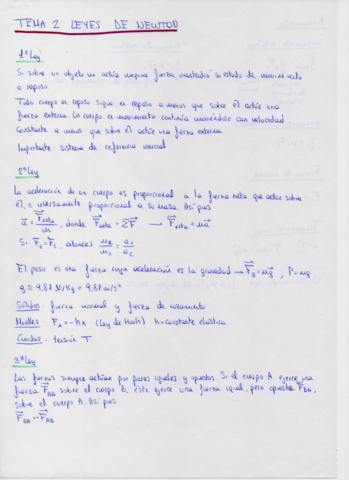 TEMA 2: LEYES DE NEWTON
1ª Ley
Si sobre un objeto no actúa ninguna fuerza mantendrá su estado de movimiento
o reposo.
Todo cuerpo en reposo sigue en reposo a menos que sobre él actúe una
fuerza externa. Un cuerpo en movimiento continúa moviéndose con velocidad
constante a menos que sobre él actúe una fuerza externa.
Importante: sistema de referencia inercial
2ª Ley
La aceleración de un cuerpo es proporcional a la fuerza neta que actúe sobre
él, e inversamente proporcional a su masa. Así pues
a⃗ = F⃗neta/m, donde F⃗neta = ΣF⃗ → F⃗neta = ma⃗
Si F⃗₂ = F⃗₁, entonces m₂/m₁ = a₁/a₂
El peso es una fuerza cuya aceleración es la gravedad → F⃗g = mg⃗, P = mg
g ≈ 9,81 N/kg = 9,81 m/s²
Sólidos: fuerza normal y fuerza de rozamiento
Muelles: Fx = -Kx (Ley de Hook) K = constante elástica
Cuerdas: tensión T
3ª Ley
Las fuerzas siempre actúan por pares iguales y opuestos. Si el cuerpo A ejerce una
fuerza F⃗AB sobre el cuerpo B, éste ejerce una fuerza igual, pero opuesta F⃗BA,
sobre el cuerpo A. Así pues
F⃗BA = -F⃗AB